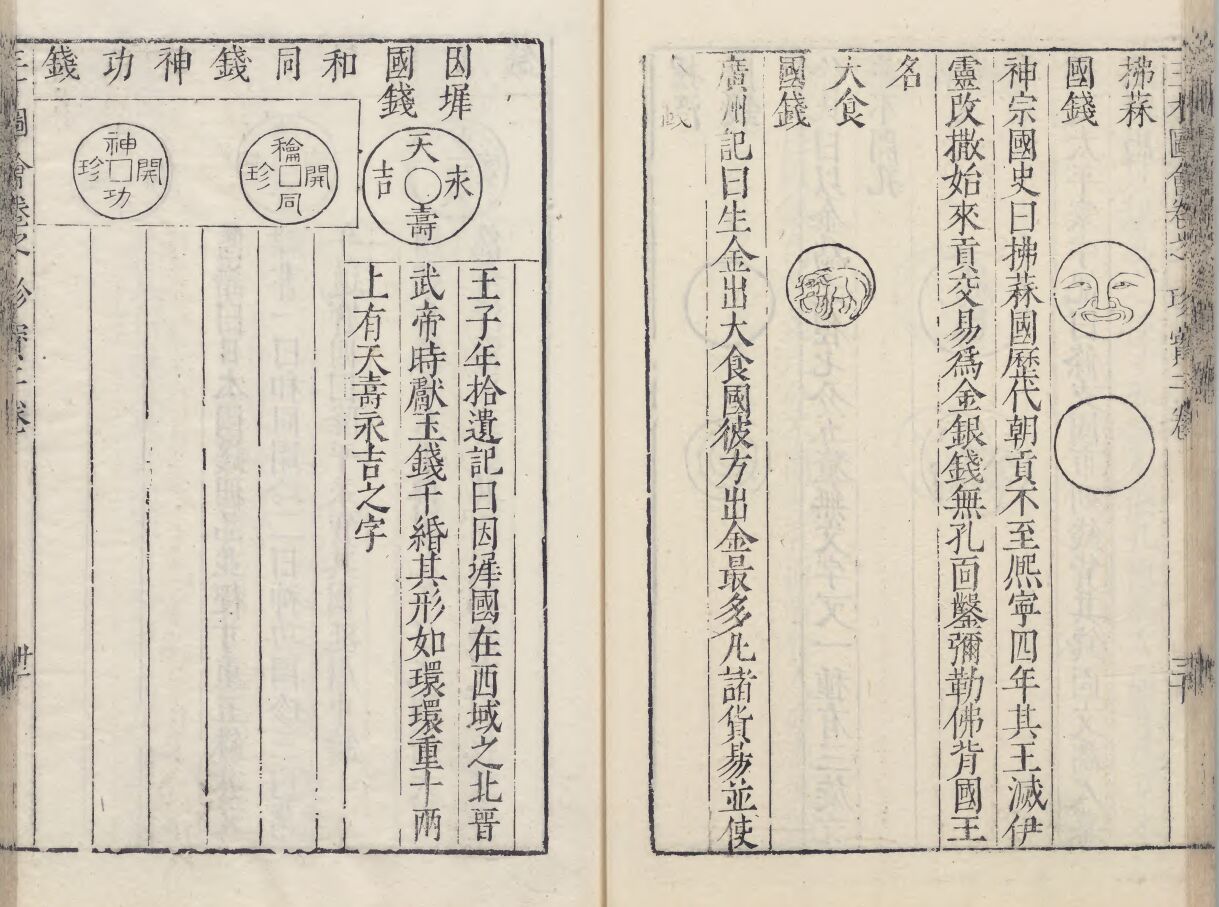 圖會
珍寶二卷
三十
拂菻
國錢
神宗國史曰拂菻國歷代朝貢不至熈寧四年其王滅伊
靈改撒始來貢交易爲金銀錢無孔面鑿彌勒佛背國王
名
大食
國錢
廣州記曰生金出大食國彼方出金最多凡諸貨易並使
因墀
國錢
天壽永吉
王子年拾遺記曰因墀國在西域之北晉
武帝時獻玉錢千緡其形如環環重十兩
上有天壽永吉之字
和同錢
稐同開珍
神功錢
神功開珍
圖會卷之
珍寶二卷